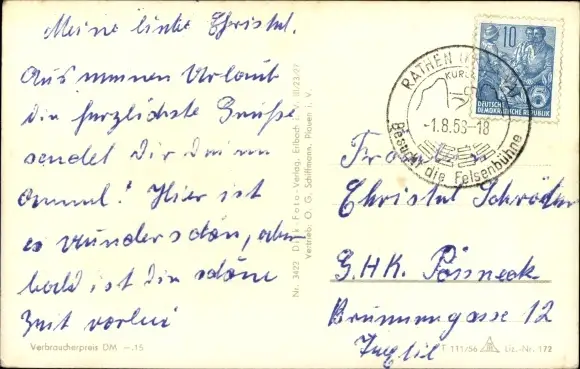 Meine liebe Christel.
Aus meinem Urlaub
die herzlichste Grüße
sendet Dir Deine
Hier ist
es wunderschön, aber
bald ist die schöne
Zeit vorbei
Verbraucherpreis DM —.15
Nr. 3422 Dick Foto-Verlag, Erlbach i. V. III/23/27
Vertrieb: O. G. Schiffmann, Plauen i. V.
RATHEN
-1.8.56-18
Besucht die Felsenbühne
10
DEUTSCHE
DEMOKRATISCHE REPUBLIK
5
Christel Schröter
G.H.K. Pössneck
Brunnengasse 12
T 111/56 Liz.-Nr. 172